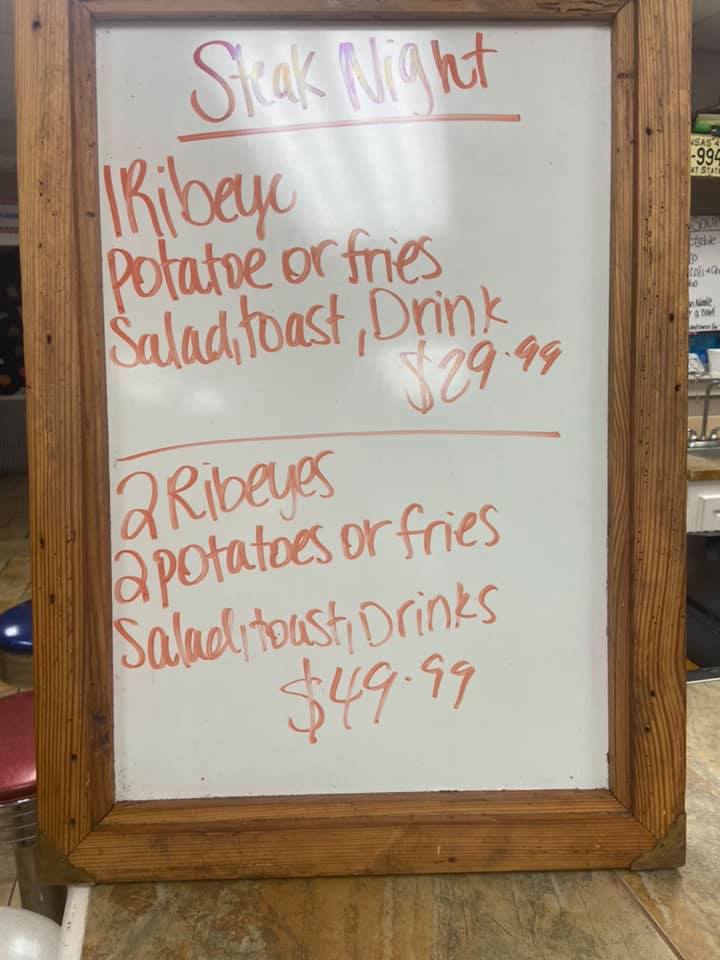 Steak Night
1 Ribeye
Potatoe or fries
Salad, toast, Drink
$29.99
2 Ribeyes
2 potatoes or fries
Salad, toast, Drinks
$49.99
NSAS
-994
AT STAT